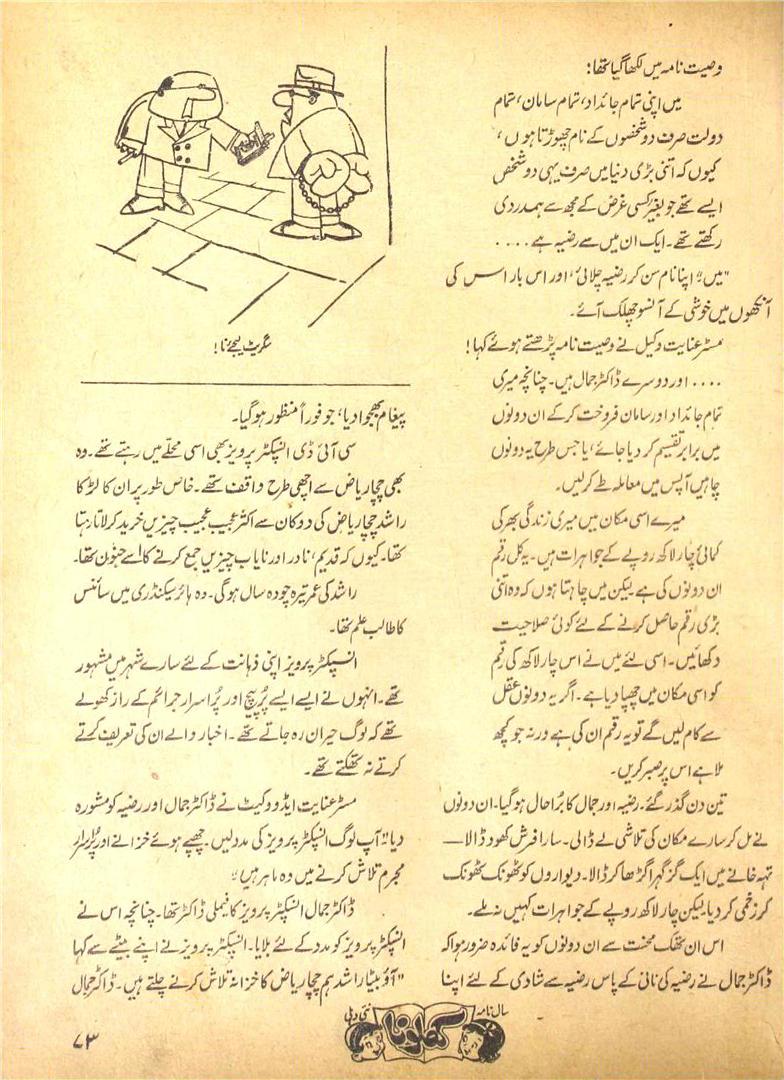 وصیت نامہ میں لکھا گیا تھا:
میں اپنی تمام جائداد، تمام سامان، تمام
دولت صرف دو شخصوں کے نام چھوڑتا ہوں،
کیوں کہ اتنی بڑی دنیا میں صرف یہی دو شخص
ایسے تھے جو بغیر کسی غرض کے مجھ سے ہمدردی
رکھتے تھے۔ ایک ان میں سے رضیہ ہے ....
"میں"! اپنا نام سن کر رضیہ چلائی، اور اس بار اس کی
آنکھوں میں خوشی کے آنسو چھلک آئے۔
مسٹر عنایت وکیل نے وصیت نامہ پڑھتے ہوئے کہا!
.... اور دوسرے ڈاکٹر جمال ہیں۔ چنانچہ میری
تمام جائداد اور سامان فروخت کر کے ان دونوں
میں برابر تقسیم کر دیا جائے، یا جس طرح یہ دونوں
چاہیں آپس میں معاملہ طے کر لیں۔
میرے اسی مکان میں میری زندگی بھر کی
کمائی چار لاکھ روپے کے جواہرات ہیں۔ یہ کل رقم
ان دونوں کی ہے لیکن میں چاہتا ہوں کہ وہ اتنی
بڑی رقم حاصل کرنے کے لئے کوئی صلاحیت
دکھائیں۔ اسی لئے میں نے اس چار لاکھ کی رقم
کو اسی مکان میں چھپا دیا ہے۔ اگر یہ دونوں عقل
سے کام لیں گے تو یہ رقم ان کی ہے ورنہ جو کچھ
ملا ہے اس پر صبر کریں۔
تین دن گذر گئے۔ رضیہ اور جمال کا بُرا حال ہو گیا۔ ان دونوں
نے مل کر سارے مکان کی تلاشی لے ڈالی۔ سارا فرش کھود ڈالا —
تہہ خانے میں ایک گز گہرا گڑھا کر ڈالا۔ دیواروں کو ٹھونک ٹھونک
کر زخمی کر دیا۔ لیکن چار لاکھ روپے کے جواہرات کہیں نہ ملے۔
اس ان تھک محنت سے ان دونوں کو یہ فائدہ ضرور ہوا کہ
ڈاکٹر جمال نے رضیہ کی نانی کے پاس رضیہ سے شادی کے لئے اپنا
سگریٹ لیجئے نا!
پیغام بھجوا دیا، جو فوراً منظور ہو گیا۔
سی آئی ڈی انسپکٹر پرویز بھی اسی محلے میں رہتے تھے۔ وہ
بھی چچا ریاض سے اچھی طرح واقف تھے۔ خاص طور پر ان کا لڑکا
راشد چچا ریاض کی دوکان سے اکثر عجیب عجیب چیزیں خرید کر لاتا رہتا
تھا۔ کیوں کہ قدیم، نادر اور نایاب چیزیں جمع کرنے کا اُسے جنون تھا۔
راشد کی عمر تیرہ چودہ سال ہوگی۔ وہ ہائر سیکنڈری میں سائنس
کا طالب علم تھا۔
انسپکٹر پرویز اپنی ذہانت کے لئے سارے شہر میں مشہور
تھے۔ انہوں نے ایسے ایسے پُر پیچ اور پُر اسرار جرائم کے راز کھولے
تھے کہ لوگ حیران رہ جاتے تھے۔ اخبار والے ان کی تعریف کرتے
کرتے نہ تھکتے تھے۔
مسٹر عنایت ایڈووکیٹ نے ڈاکٹر جمال اور رضیہ کو مشورہ
دیا "آپ لوگ انسپکٹر پرویز کی مدد لیں۔ چھپے ہوئے خزانے اور پُراسرار
مجرم تلاش کرنے میں وہ ماہر ہیں"
ڈاکٹر جمال انسپکٹر پرویز کا فیملی ڈاکٹر تھا۔ چنانچہ اس نے
انسپکٹر پرویز کو مدد کے لئے بلایا۔ انسپکٹر پرویز نے اپنے بیٹے سے کہا
"آؤ بیٹا راشد ہم چچا ریاض کا خزانہ تلاش کرنے چلتے ہیں۔ ڈاکٹر جمال
سال نامہ کھلونا نئی دہلی
۷۳